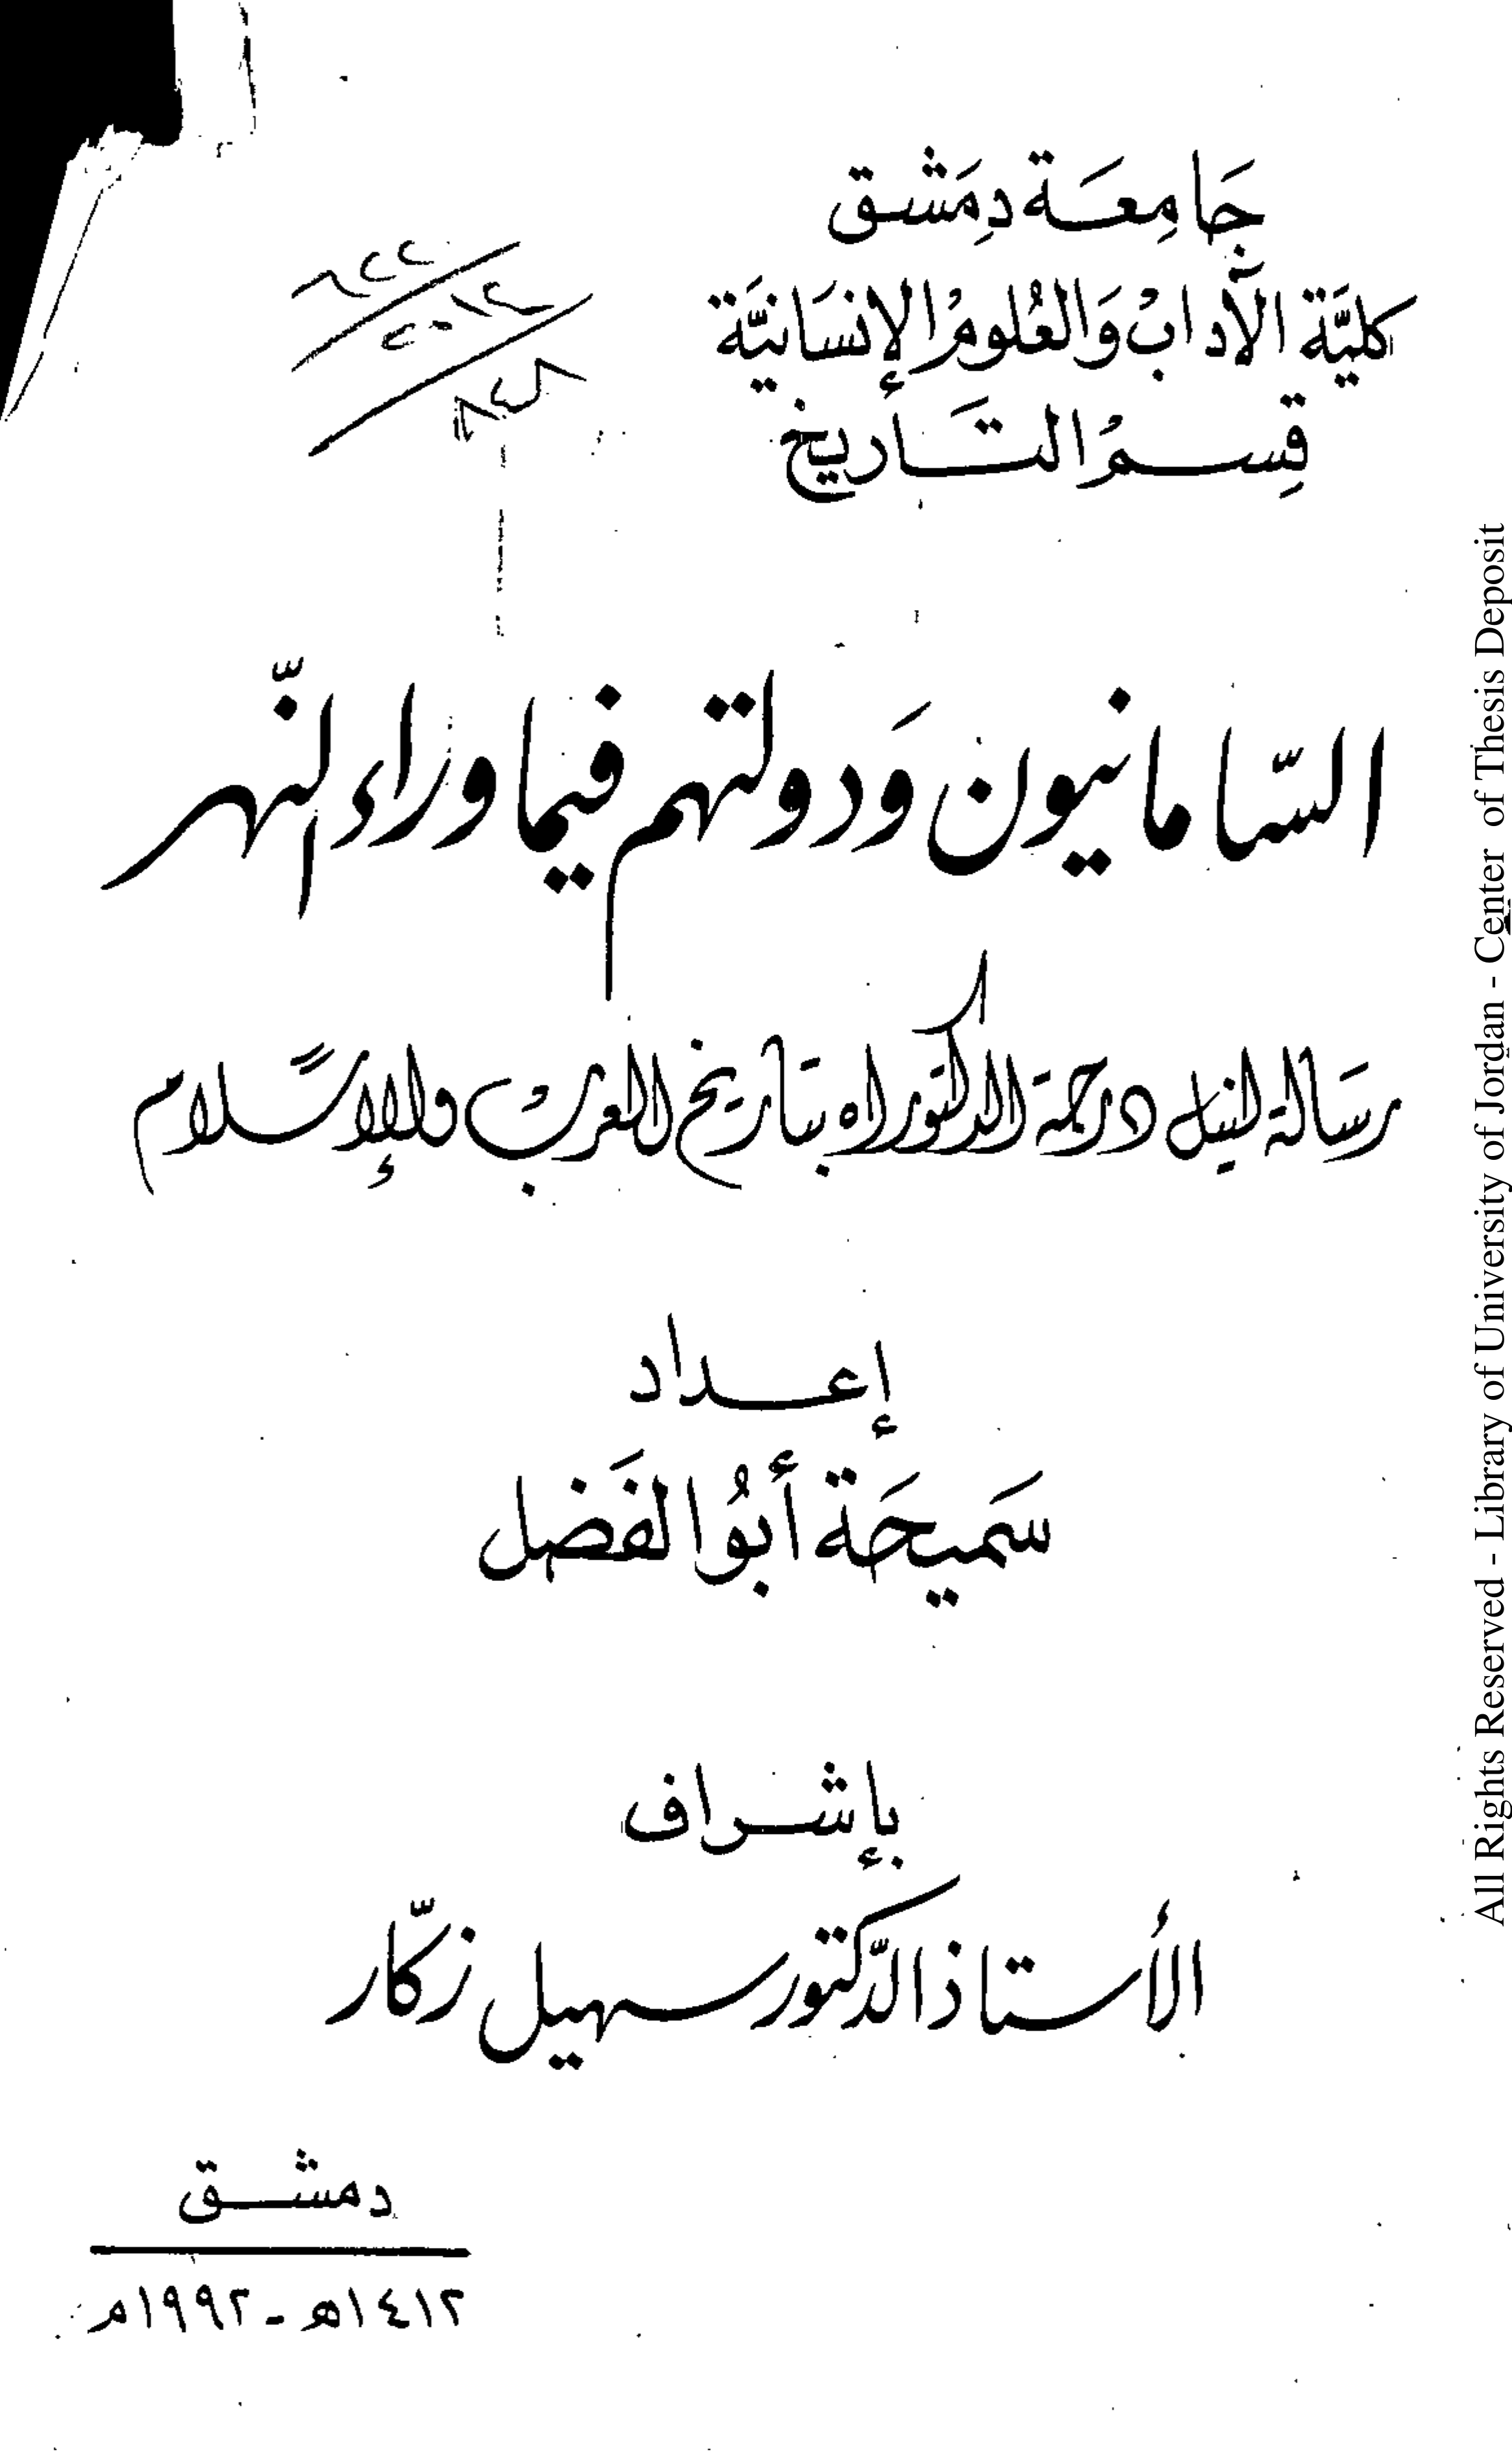 جَامِعَة دِمَشق
كليَّة الآدابْ وَالعُلومْ الإنسَانيَّة
قِسمْ التَأريخ
السّامانيون وَدولتهم فيما وراء النّهر
رسَالة لنيل درجة الدكتوراه بتَأريخ العربْ والإسلام
إعداد
سَميحَة أبُو الفَضل
بإشراف
الأستاذ الدّكتور سهيل زكّار
دمشق
١٤١٢هـ - ١٩٩٢م
All Rights Reserved - Library of University of Jordan - Center of Thesis Deposit